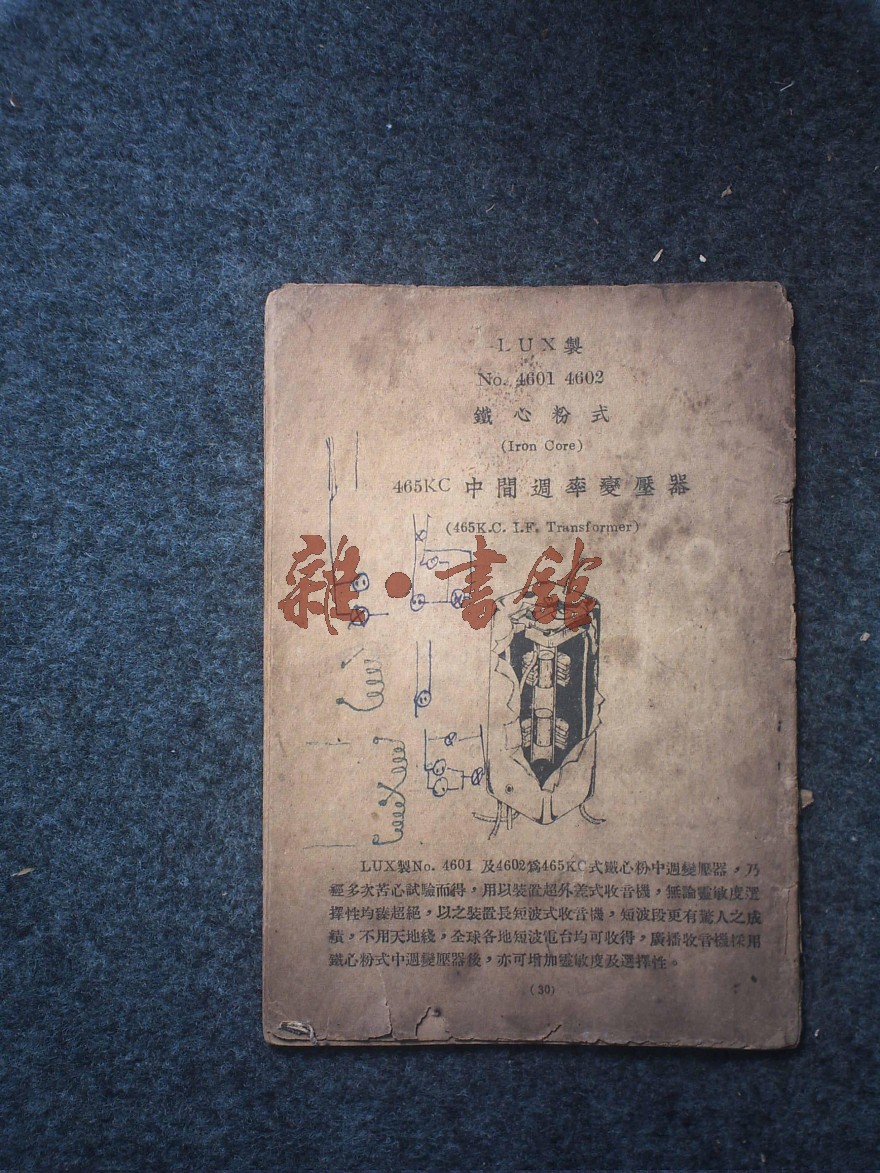 LUX製
No. 4601 4602
鐵心粉式
(Iron Core)
465KC 中間週率變壓器
(465K.C. I.F. Transformer)
雜·書館
LUX製No. 4601 及4602爲465KC式鐵心粉中週變壓器,乃
經多次苦心試驗而得,用以裝置超外差式收音機,無論靈敏度選
擇性均臻超絕,以之裝置長短波式收音機,短波段更有驚人之成
績,不用天地綫,全球各地短波電台均可收得,廣播收音機採用
鐵心粉式中週變壓器後,亦可增加靈敏度及選擇性。
(30)